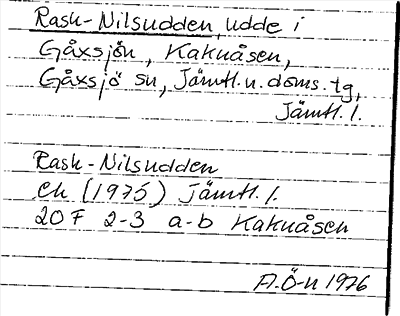 Rask-Nilsudden, udde i
Gåxsjön, Kaknåsen,
Gåxsjö sn, Jämtl. n. doms. tg,
Jämtl. l.
Rask-Nilsudden
ek (1975) Jämtl. l.
20 F 2-3 a-b Kaknåsen
A.Ö-n 1976